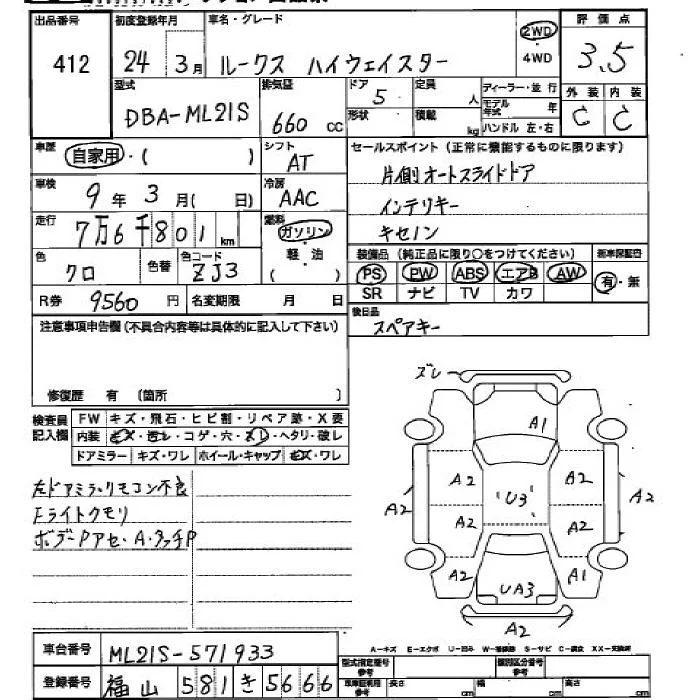 出品番号 初度登録年月 車名・グレード 評価点
412 24 3月 ルークス ハイウェイスター 2WD 4WD 3.5
型式 排気量 ドア 定員 ディーラー・並行 外装 内装
DBA-ML21S 660 CC 5 人 モデル年式 年 C C
形状 積載 kg ハンドル 左・右
車歴 自家用・( ) シフト AT セールスポイント (正常に機能するものに限ります)
車検 9年 3月( 日) 冷房 AAC 片側オートスライドドア
走行 7万6千801km 燃料 ガソリン・軽・油 ( ) インテリキー
キセノン
色 クロ 色替 色コード ZJ3 装備品 (純正品に限り○をつけてください) 新車保証書
PS PW ABS エアB AW 有・無
R券 9560円 名変期限 月 日 SR ナビ TV カワ
注意事項申告欄 (不具合内容等は具体的に記入して下さい) 後日品
スペアキー
修復歴 有 (箇所 )
ズレ
検査員記入欄 FW キズ・飛石・ヒビ割・リペア跡・X要
内装 キズ・汚レ・コゲ・穴・スレ・ヘタリ・破レ
ドアミラー キズ・ワレ ホイール・キャップ キズ・ワレ
A1
左ドアミラーリモコン不良
A2 A2 A2 U3 A2 A2
Fライトクモリ
A2 A2
ボデーPアセ・A・タッチP
A2 A1
UA3
A2
車台番号 ML21S-571933
A-キズ E-エクボ U-凹み W-補修跡 S-サビ C-腐食 XX-交換済
型式指定番号 類別区分番号
登録番号 福山 581 き 5666
車庫証明用参考 長さ cm 幅 cm 高さ cm